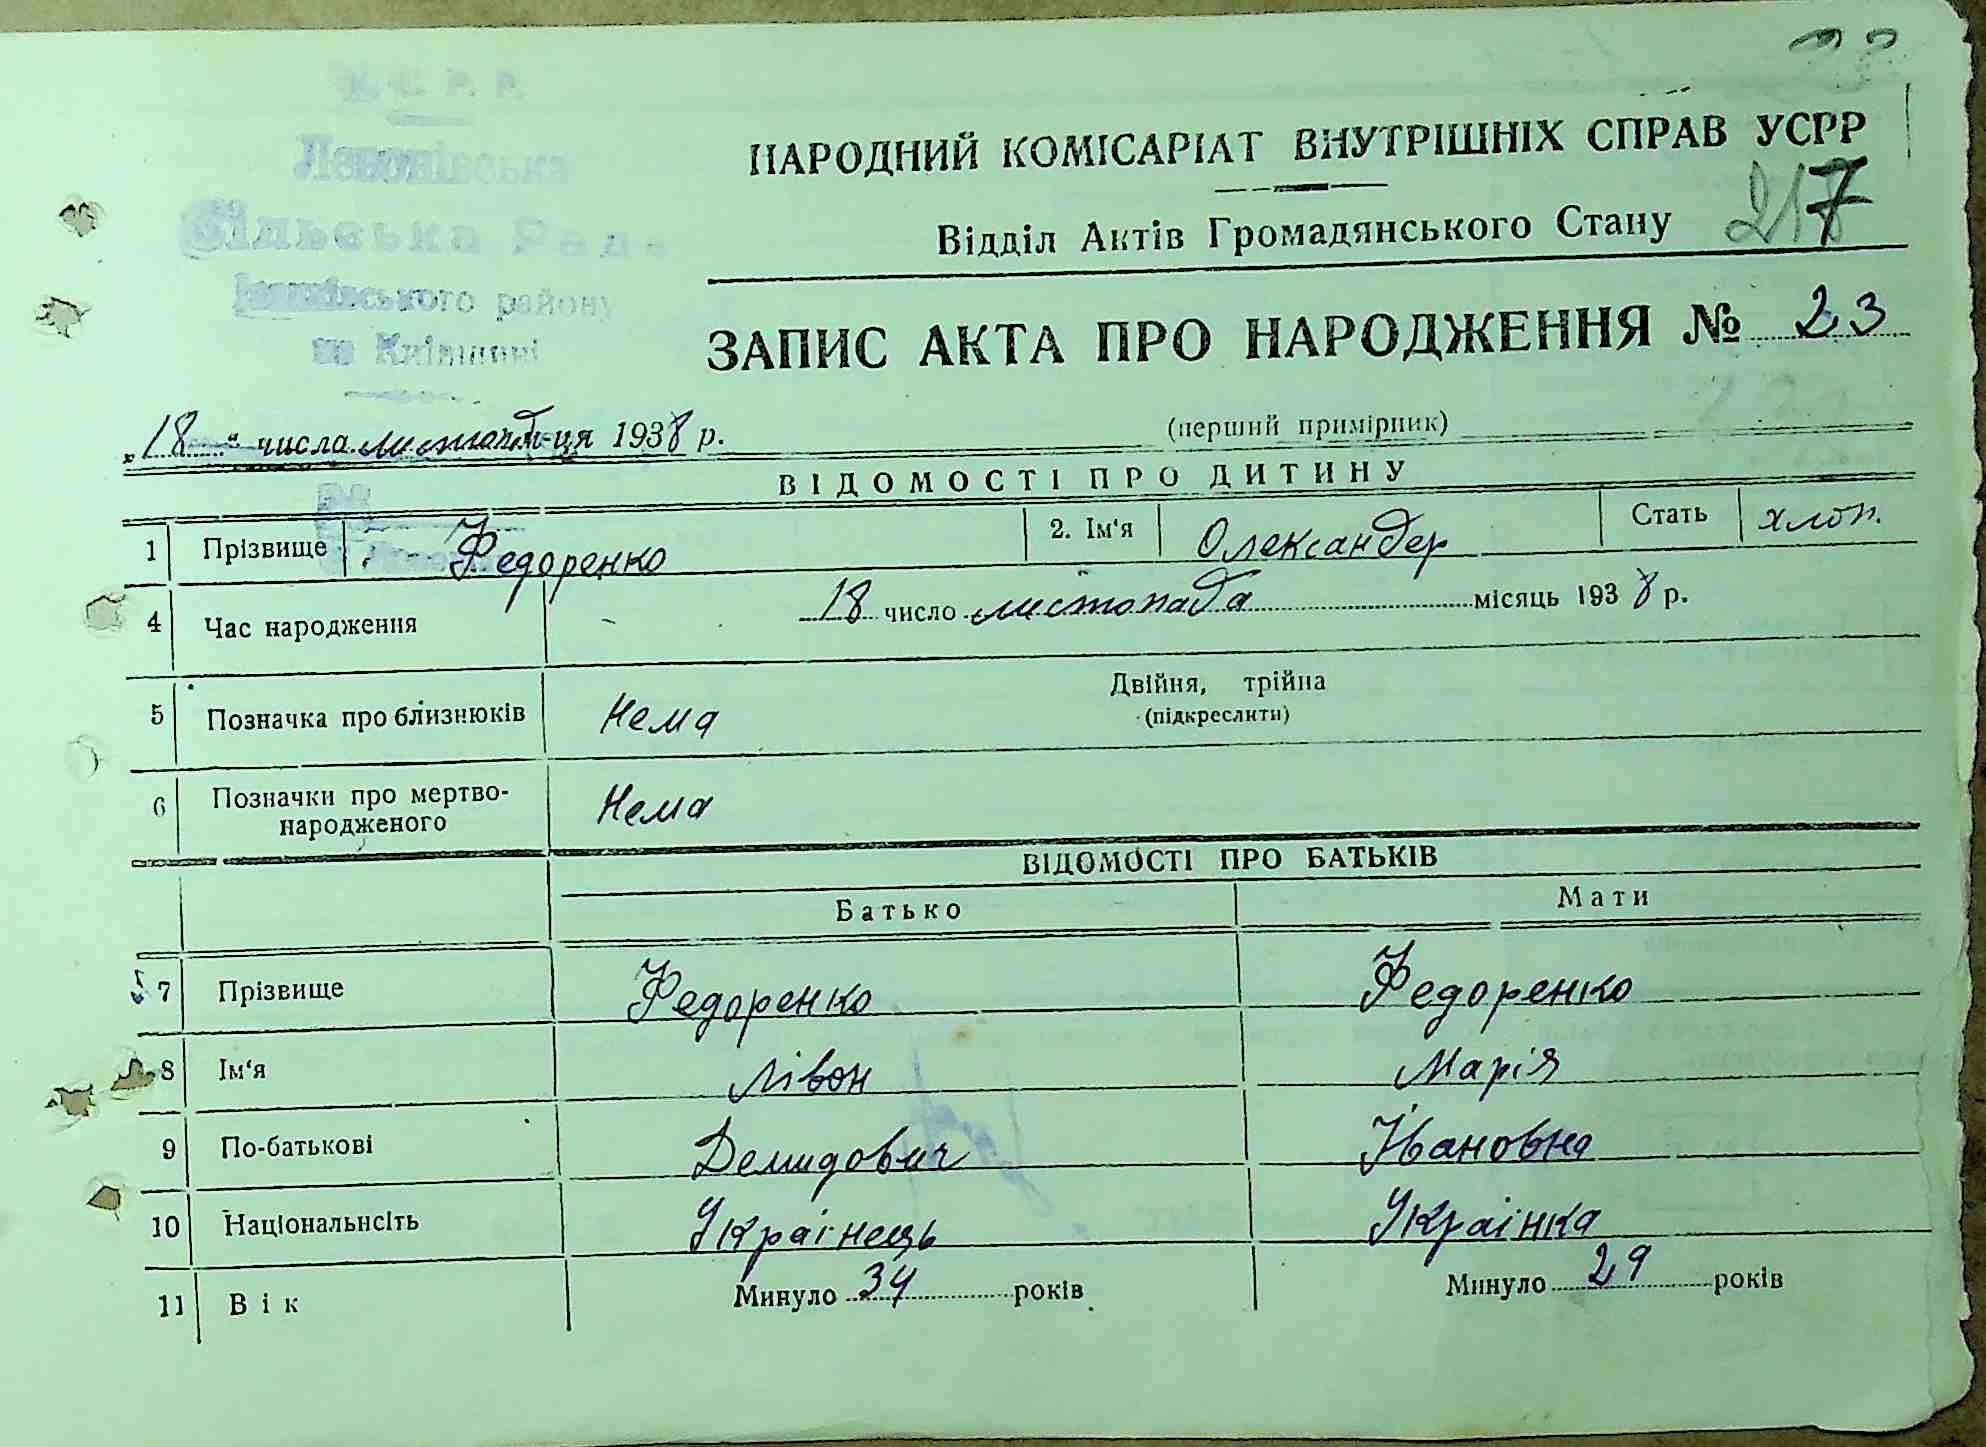 23
У. С. Р. Р.
Сільська Рада
району
на Київщині
НАРОДНИЙ КОМІСАРІАТ ВНУТРІШНІХ СПРАВ УСРР
Відділ Актів Громадянського Стану 217
ЗАПИС АКТА ПРО НАРОДЖЕННЯ № 23
„18“ числа листопад-ця 1938 р. (перший примірник)
ВІДОМОСТІ ПРО ДИТИНУ
1 Прізвище Федоренко 2. Ім'я Олександер Стать хлоп.
4 Час народження 18 число листопада місяць 1938 р.
5 Позначка про близнюків Нема Двійня, трійна
(підкреслити)
6 Позначки про мертво-
народженого Нема
ВІДОМОСТІ ПРО БАТЬКІВ
Батько Мати
7 Прізвище Федоренко Федоренко
8 Ім'я Лівон Марія
9 По-батькові Демидович Івановна
10 Національнсіть Українець Українка
11 Вік Минуло 34 років Минуло 29 років